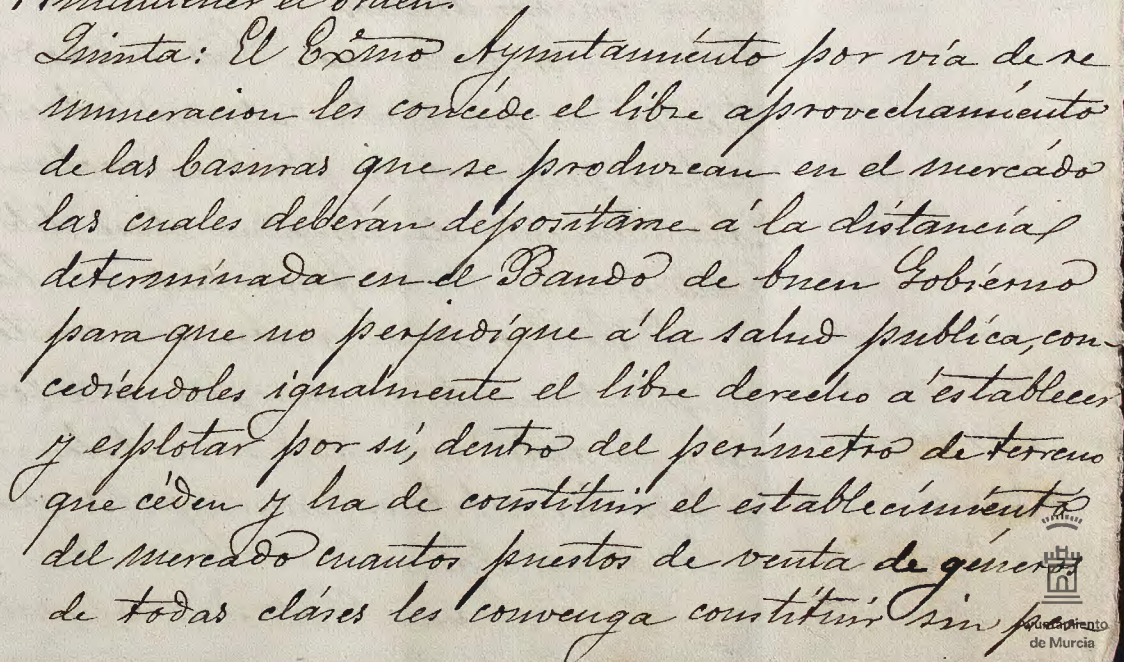 mantener el orden.
Quinta: El Exmo Ayuntamiénto por vía de re
muneracion les concéde el libre aprovechamiénto
de las basuras que se produzcan en el mercádo
las cuales deberán depositarse á la distáncia
determinada en el Bando de buen Gobiérno
para que no perjudíque á la salud publíca, con-
cediéndoles igualmente el libre derecho á establecer
y esplotar por sí, dentro del perímetro de terreno
que céden y ha de constítuir el establecimiénto
del mercado cuantos puestos de venta de géneros
de todas cláses les convenga constítuir sin per
Ayuntamiento
de Murcia